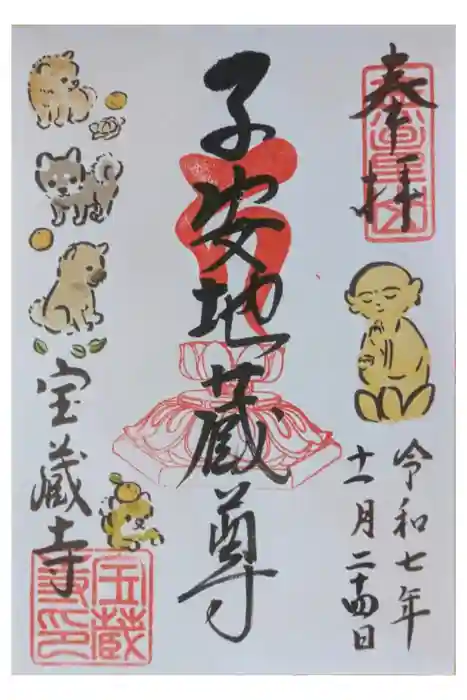 奉拝
令和七年
十一月二十四日
子安地蔵尊
宝蔵寺